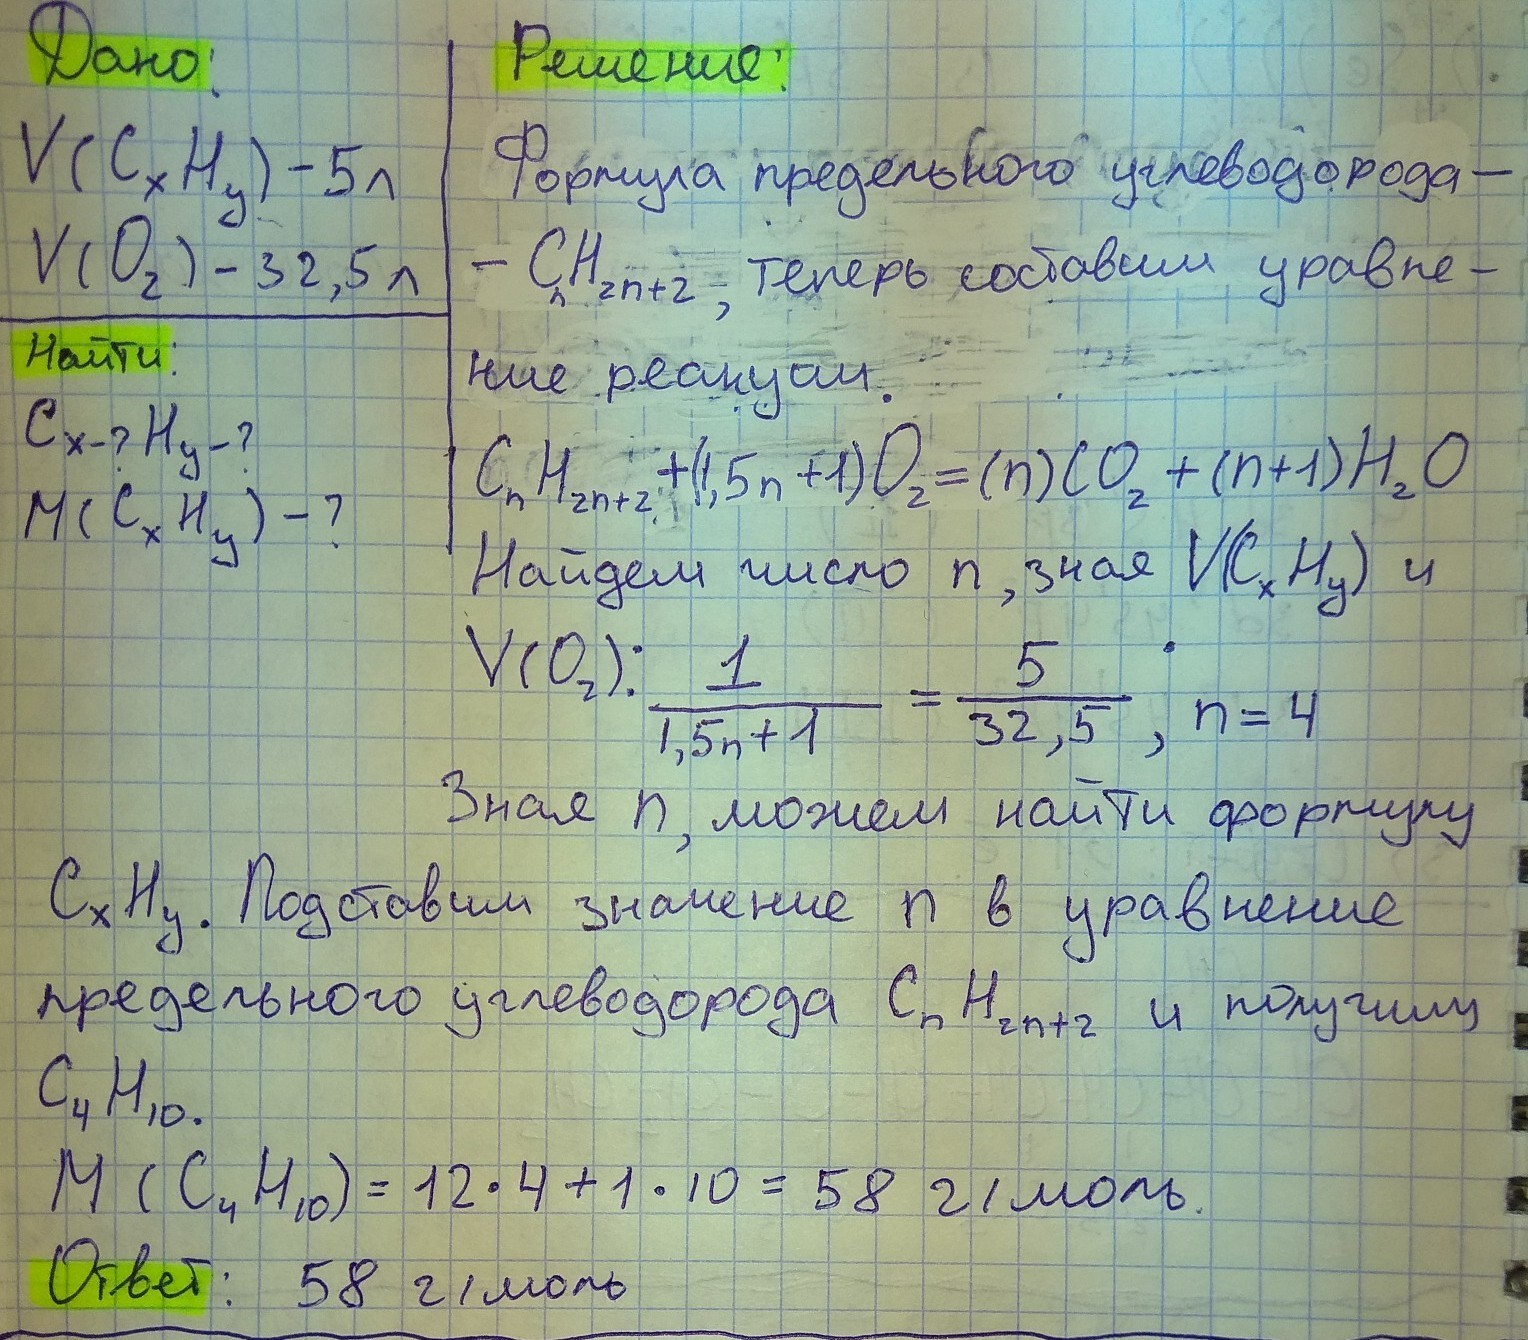 Дано:
V(CₓHᵧ) - 5л
V(O₂) - 32,5л
Найти:
Cₓ₋?Hᵧ₋?
M(CₓHᵧ) - ?
Решение:
Формула предельного углеводорода -
- CₙH₂ₙ₊₂, теперь составим уравне-
ние реакции.
CₙH₂ₙ₊₂ + (1,5n+1)O₂ = (n)CO₂ + (n+1)H₂O
Найдем число n, зная V(CₓHᵧ) и
V(O₂): 1/(1,5n+1) = 5/32,5, n = 4
Зная n, можем найти формулу
CₓHᵧ. Подставим значение n в уравнение
предельного углеводорода CₙH₂ₙ₊₂ и получим
C₄H₁₀.
M(C₄H₁₀) = 12·4 + 1·10 = 58 г/моль.
Ответ: 58 г/моль